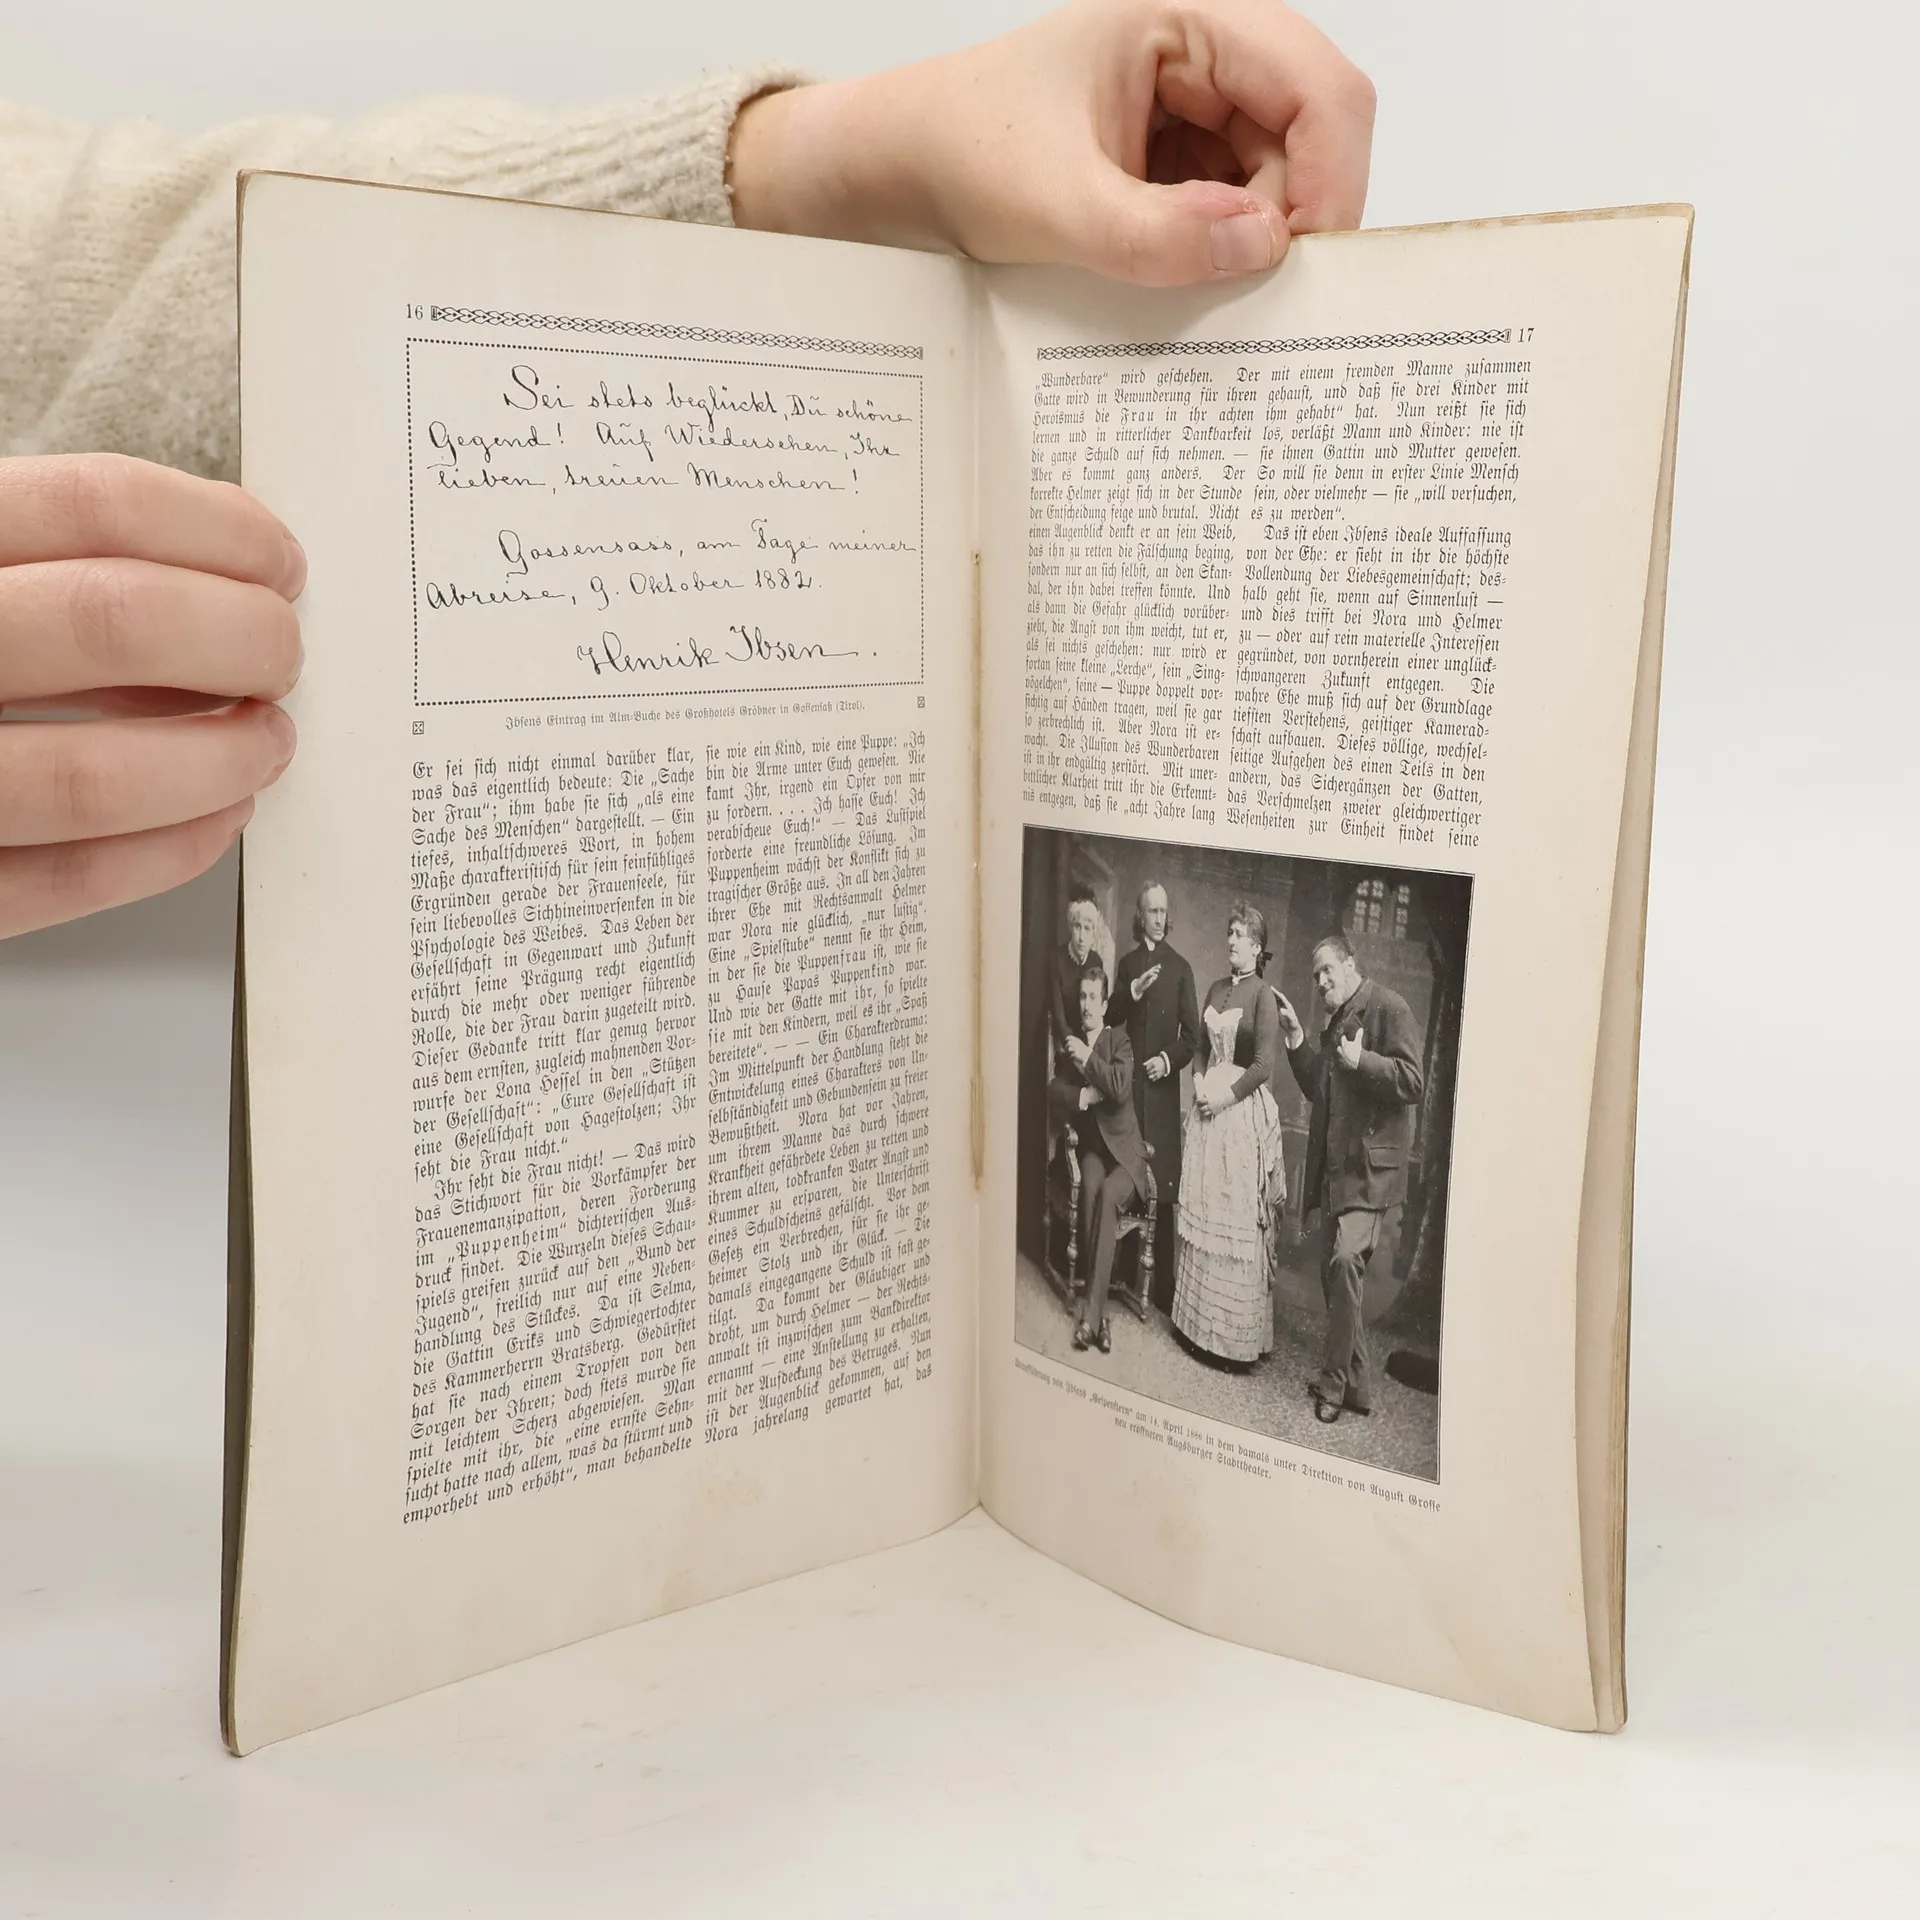 16
Sei stets beglückt, Du schöne
Gegend! Auf Wiedersehen, Ihr
lieben, treuen Menschen!
Gossensass, am Tage meiner
Abreise, 9. Oktober 1882.
Henrik Ibsen.
Ibsens Eintrag im Alm-Buche des Großhotels Gröbner in Gossensaß (Tirol).
Er sei sich nicht einmal darüber klar,
was das eigentlich bedeute: Die „Sache
der Frau“; ihm habe sie sich „als eine
Sache des Menschen“ dargestellt. — Ein
tiefes, inhaltschweres Wort, in hohem
Maße charakteristisch für sein feinfühliges
Ergründen gerade der Frauenseele, für
sein liebevolles Sichhineinversenken in die
Psychologie des Weibes. Das Leben der
Gesellschaft in Gegenwart und Zukunft
erfährt seine Prägung recht eigentlich
durch die mehr oder weniger führende
Rolle, die der Frau darin zugeteilt wird.
Dieser Gedanke tritt klar genug hervor
aus dem ernsten, zugleich mahnenden Vor-
wurfe der Lona Hessel in den „Stützen
der Gesellschaft“: „Eure Gesellschaft ist
eine Gesellschaft von Hagestolzen; Ihr
seht die Frau nicht.“
Ihr seht die Frau nicht! — Das wird
das Stichwort für die Vorkämpfer der
Frauenemanzipation, deren Forderung
im „Puppenheim“ dichterischen Aus-
druck findet. Die Wurzeln dieses Schau-
spiels greifen zurück auf den „Bund der
Jugend“, freilich nur auf eine Neben-
handlung des Stückes. Da ist Selma,
die Gattin Eriks und Schwiegertochter
des Kammerherrn Bratsberg. Gedürstet
hat sie nach einem Tropfen von den
Sorgen der Ihren; doch stets wurde sie
mit leichtem Scherz abgewiesen. Man
spielte mit ihr, die „eine ernste Sehn-
sucht hatte nach allem, was da stürmt und
emporhebt und erhöht“, man behandelte
sie wie ein Kind, wie eine Puppe: „Ich
bin die Arme unter Euch gewesen. Nie
kamt Ihr, irgend ein Opfer von mir
zu fordern. . . . Ich hasse Euch! Ich
verabscheue Euch!“ — Das Lustspiel
forderte eine freundliche Lösung. Im
Puppenheim wächst der Konflikt sich zu
tragischer Größe aus. In all den Jahren
ihrer Ehe mit Rechtsanwalt Helmer
war Nora nie glücklich, „nur lustig“.
Eine „Spielstube“ nennt sie ihr Heim,
in der sie die Puppenfrau ist, wie sie
zu Hause Papas Puppenkind war.
Und wie der Gatte mit ihr, so spielte
sie mit den Kindern, weil es ihr „Spaß
bereitete“. — — Ein Charakterdrama:
Im Mittelpunkt der Handlung steht die
Entwickelung eines Charakters von Un-
selbständigkeit und Gebundensein zu freier
Bewußtheit. Nora hat vor Jahren,
um ihrem Manne das durch schwere
Krankheit gefährdete Leben zu retten und
ihrem alten, todkranken Vater Angst und
Kummer zu ersparen, die Unterschrift
eines Schuldscheins gefälscht. Vor dem
Gesetz ein Verbrechen, für sie ihr ge-
heimer Stolz und ihr Glück. — Die
damals eingegangene Schuld ist fast ge-
tilgt. Da kommt der Gläubiger und
droht, um durch Helmer — der Rechts-
anwalt ist inzwischen zum Bankdirektor
ernannt — eine Anstellung zu erhalten,
mit der Aufdeckung des Betruges. Nun
ist der Augenblick gekommen, auf den
Nora jahrelang gewartet hat, das
17
„Wunderbare“ wird geschehen. Der
Gatte wird in Bewunderung für ihren
Heroismus die Frau in ihr achten
lernen und in ritterlicher Dankbarkeit
die ganze Schuld auf sich nehmen. —
Aber es kommt ganz anders. Der
korrekte Helmer zeigt sich in der Stunde
der Entscheidung feige und brutal. Nicht
einen Augenblick denkt er an sein Weib,
das ihn zu retten die Fälschung beging,
sondern nur an sich selbst, an den Skan-
dal, der ihn dabei treffen könnte. Und
als dann die Gefahr glücklich vorüber-
zieht, die Angst von ihm weicht, tut er,
als sei nichts geschehen: nur wird er
fortan seine kleine „Lerche“, sein „Sing-
vögelchen“, seine — Puppe doppelt vor-
sichtig auf Händen tragen, weil sie gar
so zerbrechlich ist. Aber Nora ist er-
wacht. Die Illusion des Wunderbaren
ist in ihr endgültig zerstört. Mit uner-
bittlicher Klarheit tritt ihr die Erkennt-
nis entgegen, daß sie „acht Jahre lang
mit einem fremden Manne zusammen
gehaust, und daß sie drei Kinder mit
ihm gehabt“ hat. Nun reißt sie sich
los, verläßt Mann und Kinder: nie ist
sie ihnen Gattin und Mutter gewesen.
So will sie denn in erster Linie Mensch
sein, oder vielmehr — sie „will versuchen,
es zu werden“.
Das ist eben Ibsens ideale Auffassung
von der Ehe: er sieht in ihr die höchste
Vollendung der Liebesgemeinschaft; des-
halb geht sie, wenn auf Sinnenlust —
und dies trifft bei Nora und Helmer
zu — oder auf rein materielle Interessen
gegründet, von vornherein einer unglück-
schwangeren Zukunft entgegen. Die
wahre Ehe muß sich auf der Grundlage
tiefsten Verstehens, geistiger Kamerad-
schaft aufbauen. Dieses völlige, wechsel-
seitige Aufgehen des einen Teils in den
andern, das Sichergänzen der Gatten,
das Verschmelzen zweier gleichwertiger
Wesenheiten zur Einheit findet seine
von Ibsens „Gespenstern“ am 14. April 1886 in dem damals unter Direktion von August Grosse
neu eröffneten Augsburger Stadttheater.